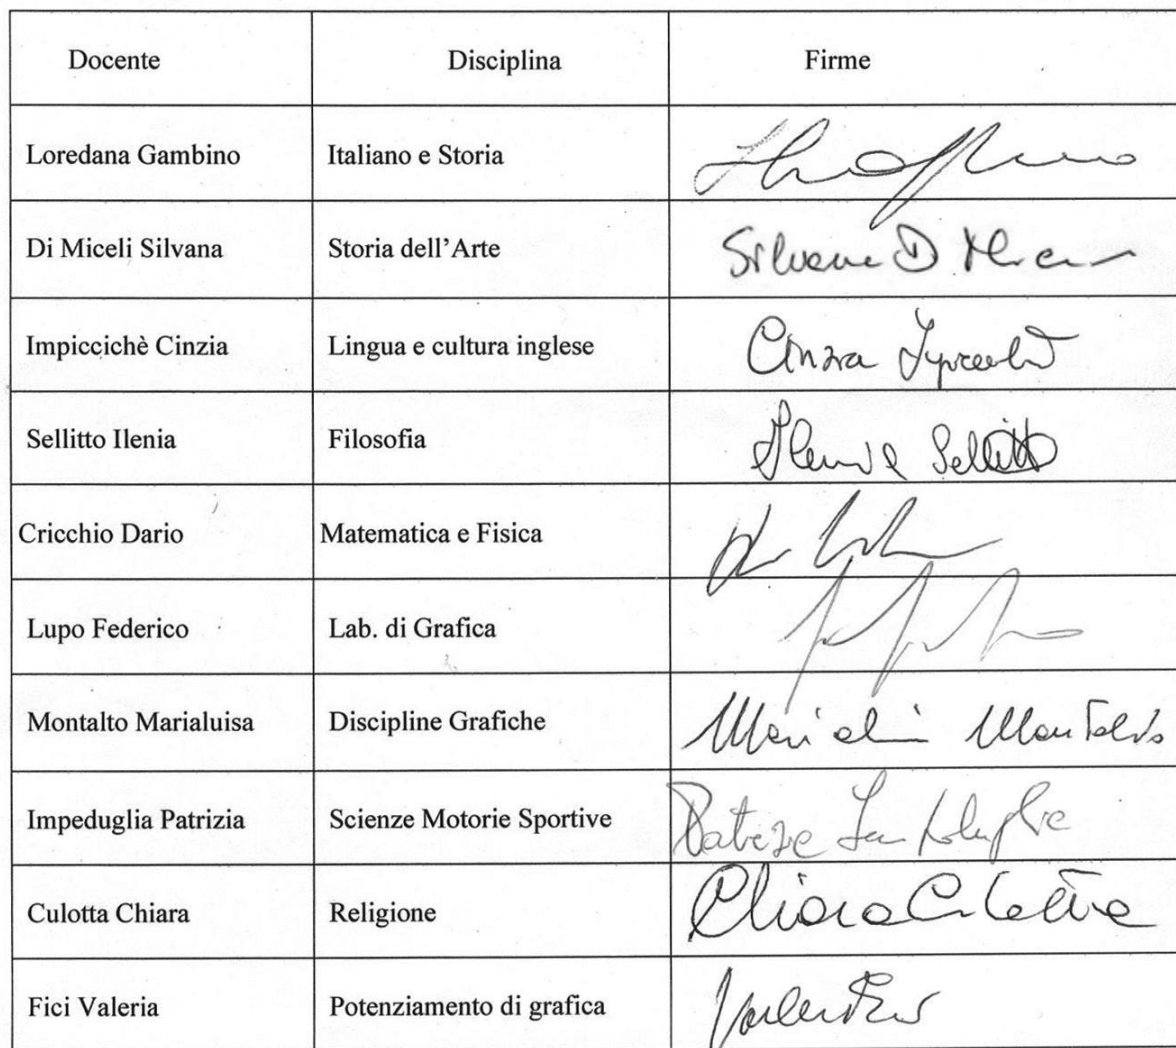 Docente Disciplina Firme
Loredana Gambino Italiano e Storia
Di Miceli Silvana Storia dell'Arte Silvana Di Miceli
Impiccichè Cinzia Lingua e cultura inglese Cinzia
Sellitto Ilenia Filosofia Ilenia Sellitto
Cricchio Dario Matematica e Fisica
Lupo Federico Lab. di Grafica
Montalto Marialuisa Discipline Grafiche Montalto
Impeduglia Patrizia Scienze Motorie Sportive
Culotta Chiara Religione Chiara Culotta
Fici Valeria Potenziamento di grafica